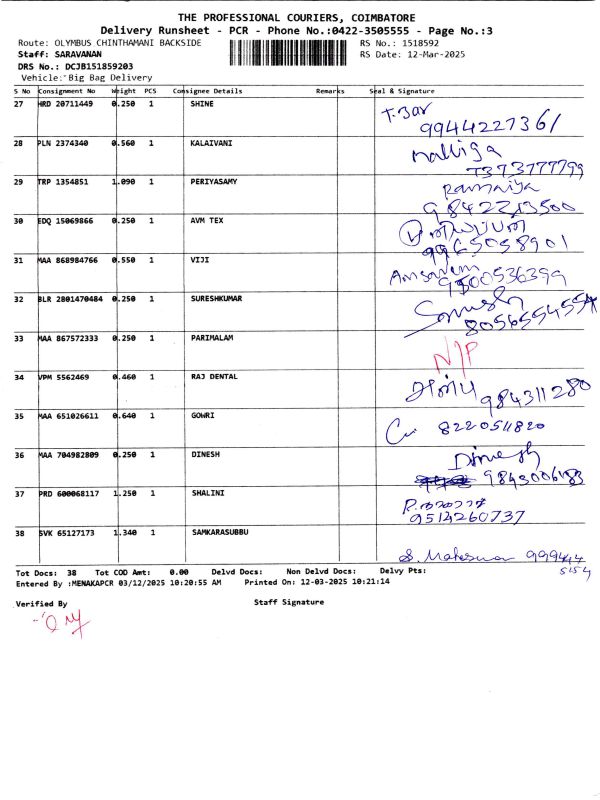 THE PROFESSIONAL COURIERS, COIMBATORE
Delivery Runsheet - PCR - Phone No.:0422-3505555 - Page No.:3
Route: OLYMBUS CHINTHAMANI BACKSIDE RS No.: 1518592
Staff: SARAVANAN RS Date: 12-Mar-2025
DRS No.: DCJB151859203
Vehicle: Big Bag Delivery
S No Consignment No Weight PCS Consignee Details Remarks Seal & Signature
27 HRD 20711449 0.250 1 SHINE
9944227361
28 PLN 2374340 0.560 1 KALAIVANI Malliga
7373777799
29 TRP 1354851 1.090 1 PERIYASAMY Ramaiya
9842213500
30 EDQ 15069866 0.250 1 AVM TEX
9965058901
31 MAA 868984766 0.550 1 VIJI
9500536399
32 BLR 2801470484 0.250 1 SURESHKUMAR
8056554554
33 MAA 867572333 0.250 1 PARIMALAM
N/P
34 VPM 5562469 0.460 1 RAJ DENTAL
984311280
35 MAA 651026611 0.640 1 GOWRI 8220511820
36 MAA 704982809 0.250 1 DINESH Dinesh
9843006183
37 PRD 600068117 1.250 1 SHALINI
9514260737
38 SVK 65127173 1.340 1 SAMKARASUBBU
S. Maheswari 999414
5154
Tot Docs: 38 Tot COD Amt: 0.00 Delvd Docs: Non Delvd Docs: Delvy Pts:
Entered By :MENAKAPCR 03/12/2025 10:20:55 AM Printed On: 12-03-2025 10:21:14
Verified By Staff Signature